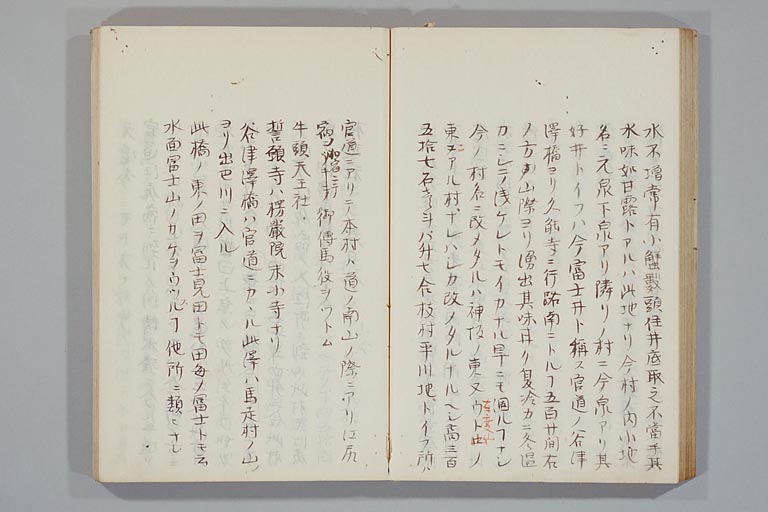 水不増常有小蟹数頭住井底取之不當手其
水味如甘露トアルハ此地ナリ今村ノ内小地
名ニ元泉下泉アリ隣リノ村ニ今泉アリ其
好井トイフハ今富士井ト稱ス官道ノ谷津
澤橋ヨリ久能寺ニ行路南ニトルヿ五百廿間右
ノ方山際ヨリ湧出其味甘ク夏冷カニ冬温
カニシテ浅ケレトモイカナル旱ニモ涸ルヿナシ
今ノ村名ニ改メタルハ神坂ノ東又ウト山ノ
東ニアル村ナレハシカ改メタルナルヘシ高三百
五拾七石 升七合枝村平川地トイフ所ハ
官道ニアリテ本村ハ道ノ南山ノ際ニアリ江尻
宿ヨリ 御傳馬役ヲツトム
牛頭天王社
誓願寺ハ楞嚴院末小寺ナリ
谷津澤橋ハ官道ニカヽル此澤ハ馬走村ノ山
ヨリ出巴川ニ入ル
此橋ノ東ノ田ヲ冨士見田トモ田毎ノ冨士トモ云
水面冨士山ノカケヲウツルヿ他所ニ類ヒナシ